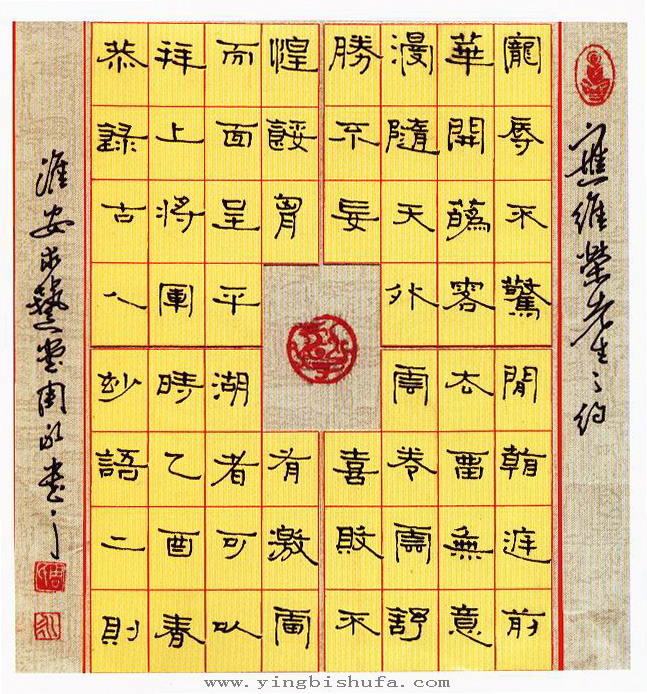 應維榮先生之約
寵辱不驚閒看庭前
華開蘤客去畱無意
漫隨天外雲卷雲舒
勝不妄喜敗不
惶餒胷有激雷
而面呈平湖者可以
拜上將軍時乙酉春
恭錄古人妙語二則
淮安求藝堂周書
www.yingbishufa.com